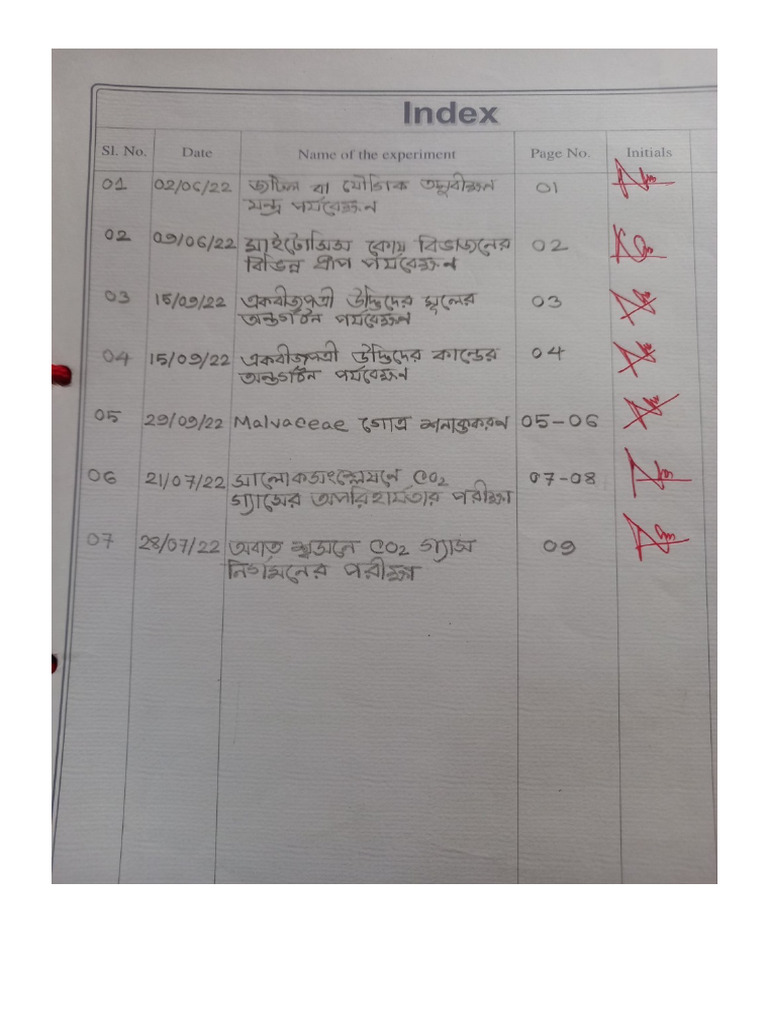 Index
Sl. No. Date Name of the experiment Page No. Initials
01 02/06/22 জটিল বা যৌগিক অনুবীক্ষন 01
যন্ত্র পর্যবেক্ষন
02 09/06/22 মাইটোসিস কোষ বিভাজনের 02
বিভিন্ন ধাপ পর্যবেক্ষন
03 15/09/22 একবীজপত্রী উদ্ভিদের মূলের 03
অন্তর্গঠন পর্যবেক্ষন
04 15/09/22 একবীজপত্রী উদ্ভিদের কান্ডের 04
অন্তর্গঠন পর্যবেক্ষন
05 29/09/22 Malvaceae গোত্র শনাক্তকরণ 05-06
06 21/07/22 সালোকসংশ্লেষনে CO2 07-08
গ্যাসের অপরিহার্যতার পরীক্ষা
07 28/07/22 অবাত শ্বসনে CO2 গ্যাস 09
নির্গমনের পরীক্ষা